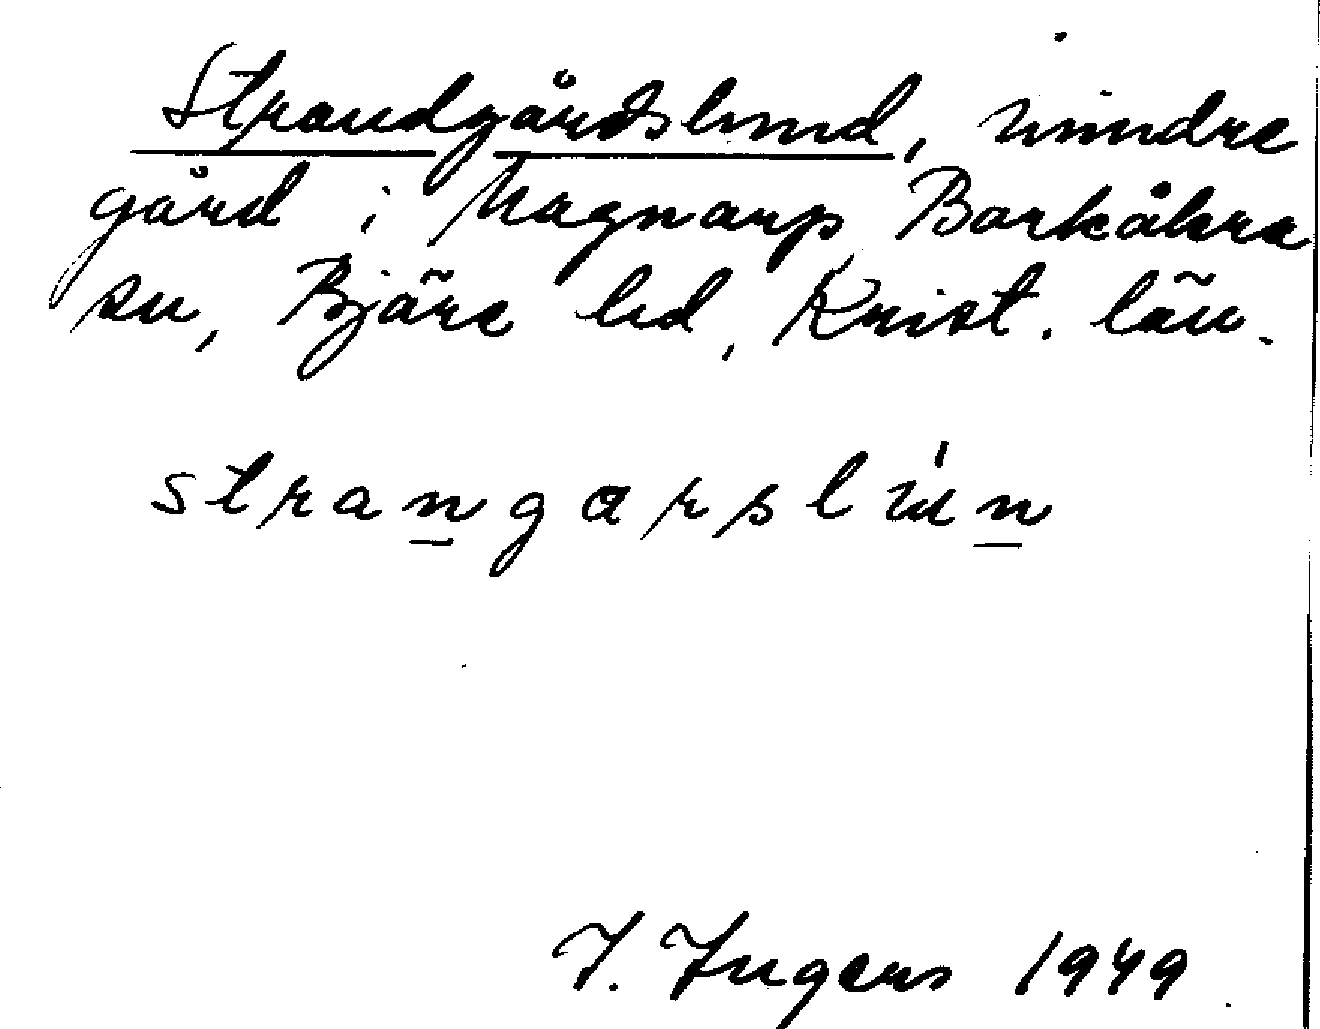 Strandgårdslund, mindre
gård i Magnarp, Barkåkra
sn, Bjäre hd, Krist. län.
strangarslún
I. Ingers 1949